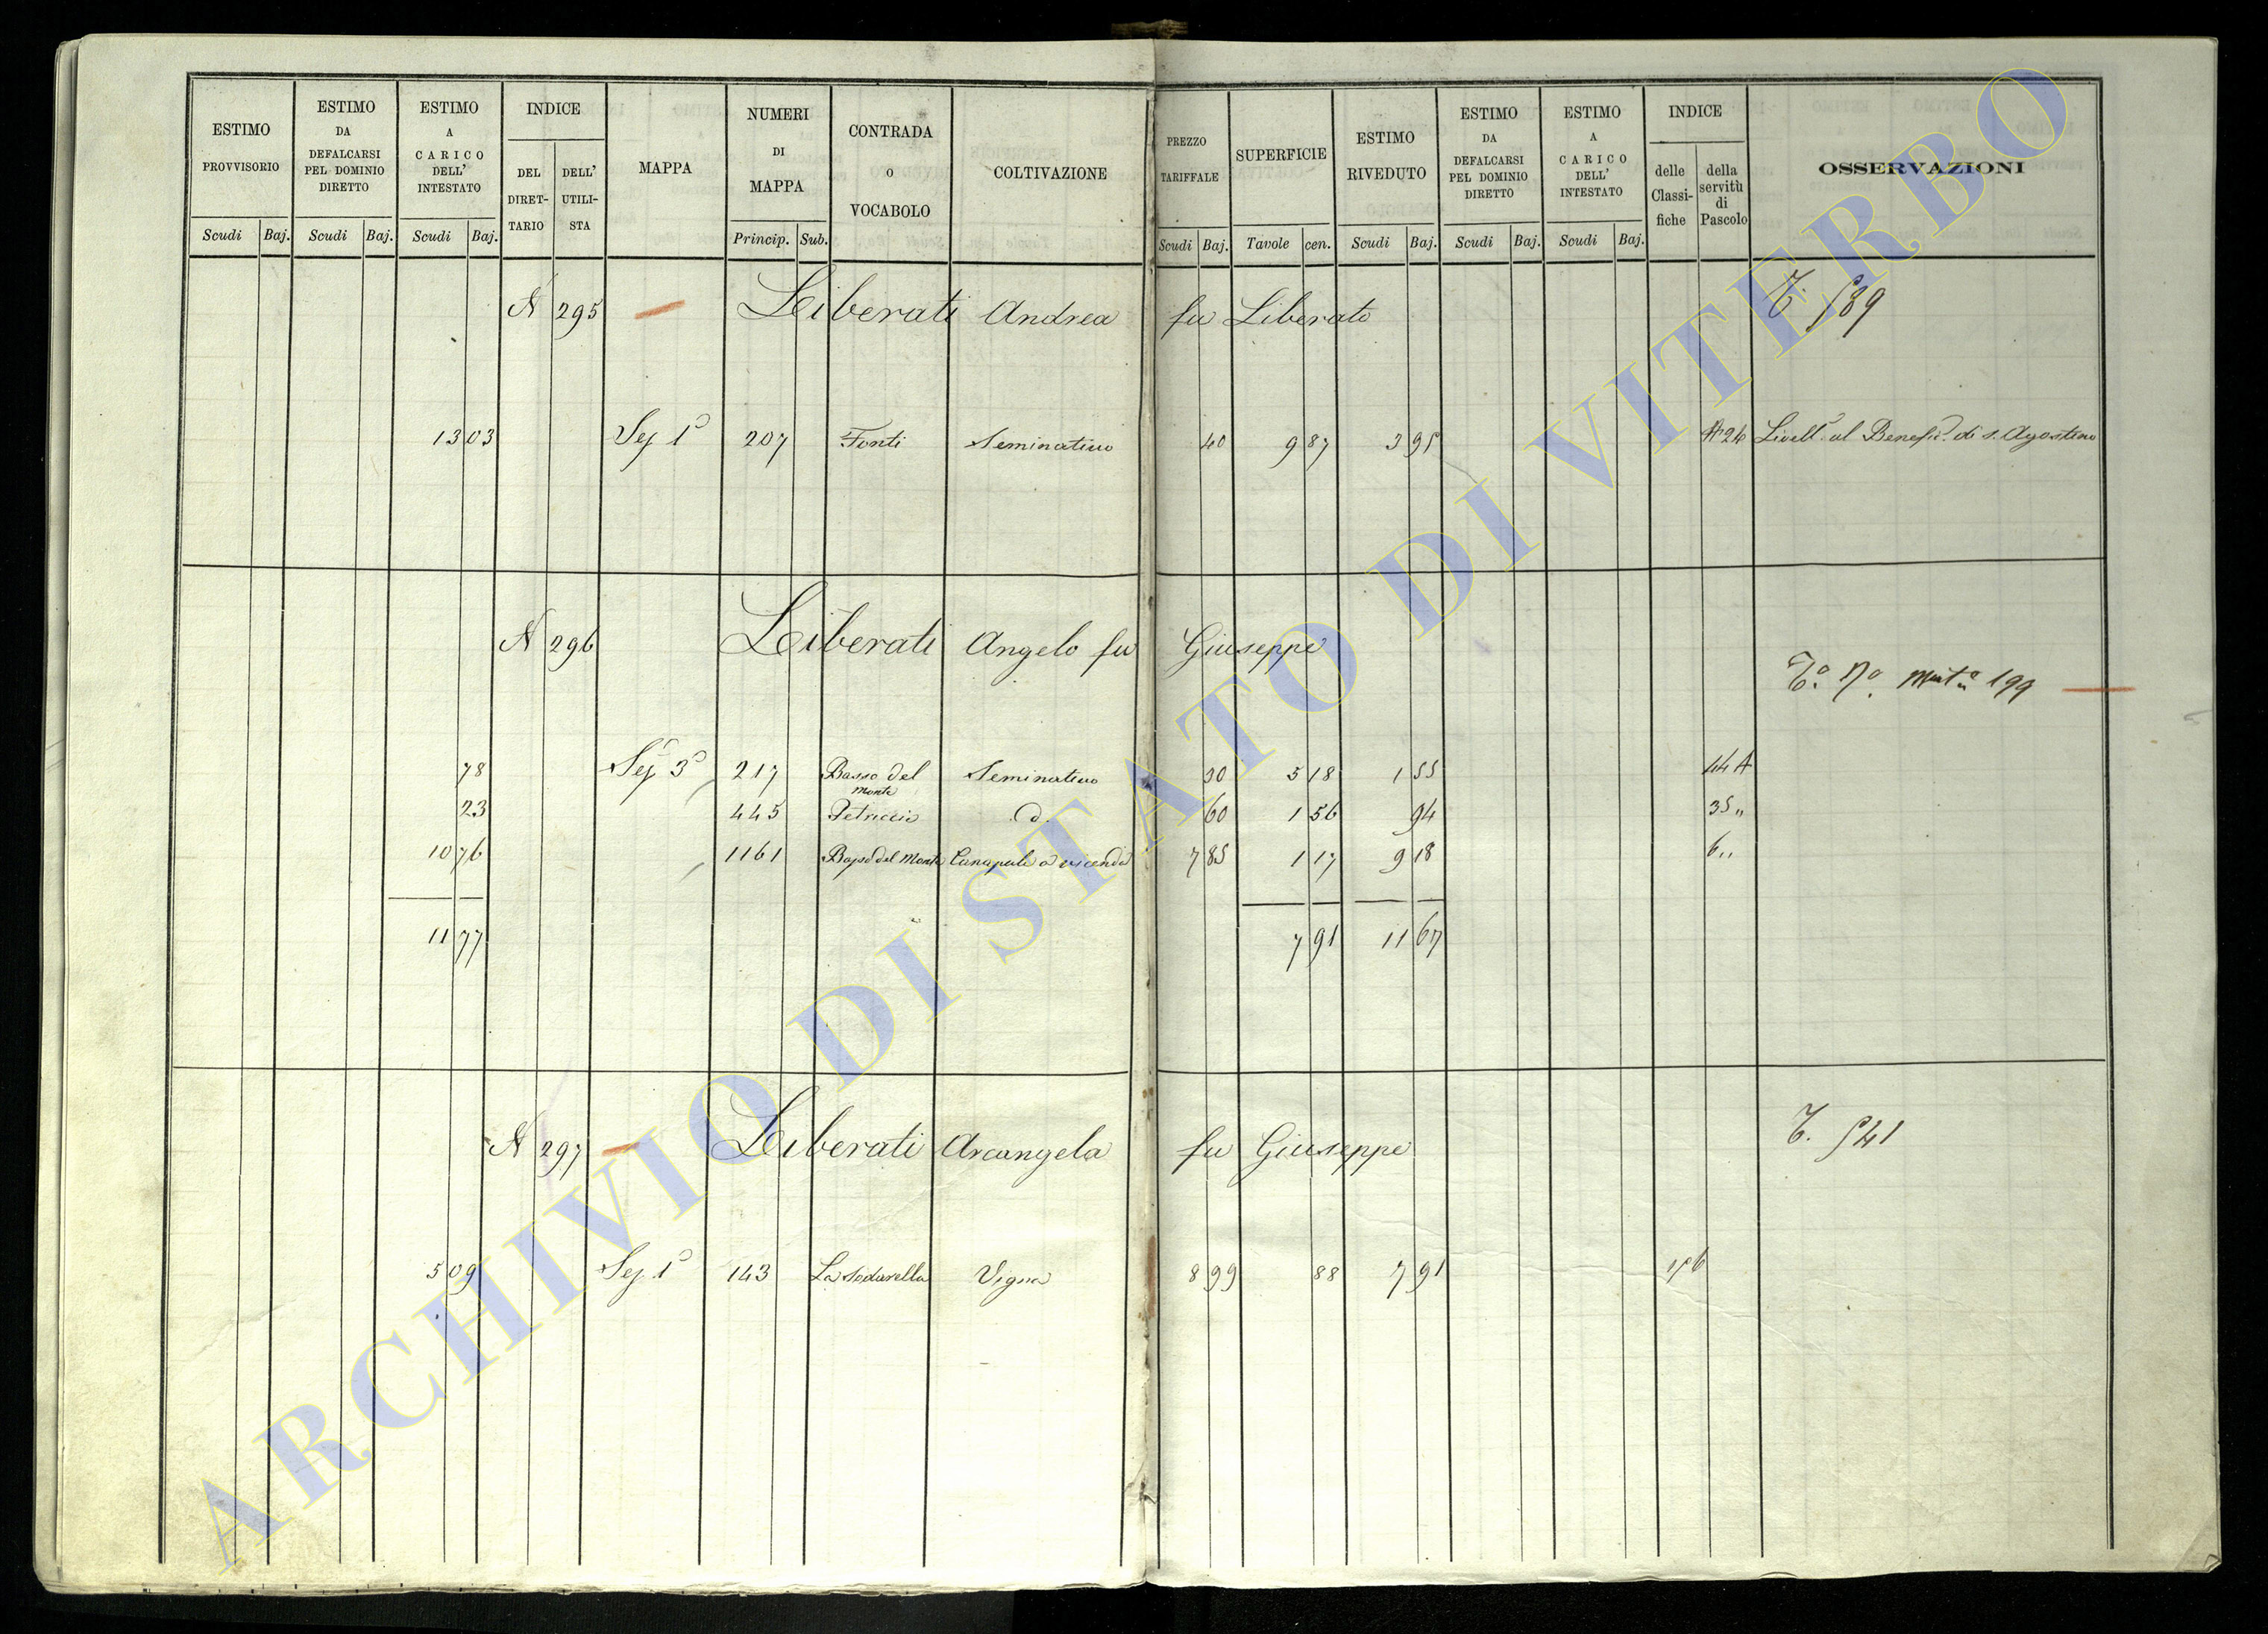 ESTIMO PROVVISORIO Scudi Baj.
ESTIMO DA DEFALCARSI PEL DOMINIO DIRETTO Scudi Baj.
ESTIMO A CARICO DELL' INTESTATO Scudi Baj.
INDICE DEL DIRET- TARIO DELL' UTILI- STA
MAPPA
NUMERI DI MAPPA Princip. Sub.
CONTRADA O VOCABOLO
COLTIVAZIONE
PREZZO TARIFFALE Scudi Baj.
SUPERFICIE Tavole cen.
ESTIMO RIVEDUTO Scudi Baj.
ESTIMO DA DEFALCARSI PEL DOMINIO DIRETTO Scudi Baj.
ESTIMO A CARICO DELL' INTESTATO Scudi Baj.
INDICE delle Classi- fiche della servitù di Pascolo
OSSERVAZIONI
N 295 Liberati Andrea fu Liberato T. 539
13 03 Sez 1ª 207 Fonti Seminativo 40 9 87 3 95 24 Livell. al Benefic. di S. Agostino
N 296 Liberati Angelo fu Giuseppe
Mut.ª 199
78 Sez 3ª 217 Basso del Monte Seminativo 30 5 18 1 55 44 A
23 445 Petriccio d. 60 1 56 94 35 "
10 76 1161 Basso del Monte Canapule a vicenda 7 85 1 17 9 18 6 "
11 77 7 91 11 67
N 297 Liberati Arcangela fu Giuseppe T. 541
5 09 Sez 1ª 143 La Sodarella Vigna 8 99 88 7 91
ARCHIVIO DI STATO DI VITERBO